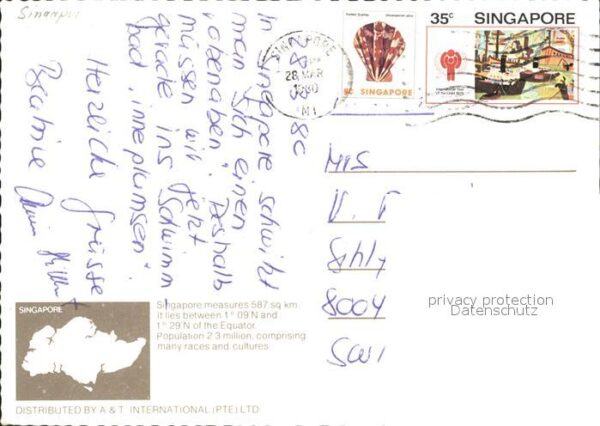 Singapur
28.3.80
In Singapore schwitzt
man sich einen
"abenaben". Deshalb
müssen wir jetzt
gerade ins Schwimm
bad "inneplumsen".
Herzliche Grüsse
Beatrice
SINGAPORE
28 MAR
1980
SINGAPORE
35c SINGAPORE
Mrs
V. F
Sihl
8004
Swi
privacy protection
Datenschutz
SINGAPORE
Singapore measures 587 sq km.
It lies between 1° 09'N and
1° 29'N of the Equator.
Population 2.3 million, comprising
many races and cultures.
DISTRIBUTED BY A & T INTERNATIONAL (PTE) LTD